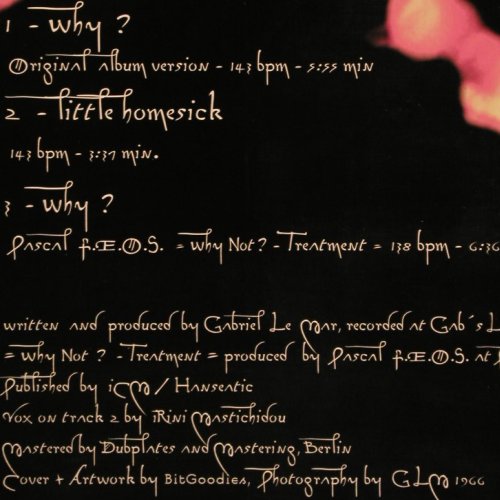 1 - Why ?
Original album version - 143 bpm - 5:55 min
2 - Little homesick
143 bpm - 3:37 min.
3 - Why ?
Pascal F.E.O.S. = Why Not? - Treatment = 138 bpm - 6:36
written and produced by Gabriel Le Mar, recorded at Gab´s L
= Why Not ? - Treatment = produced by Pascal F.E.O.S. at
Published by ICM / Hanseatic
Vox on track 2 by Irini Mastichidou
Mastered by Dubplates and Mastering, Berlin
Cover + Artwork by BitGoodies, Photography by GLM 1966